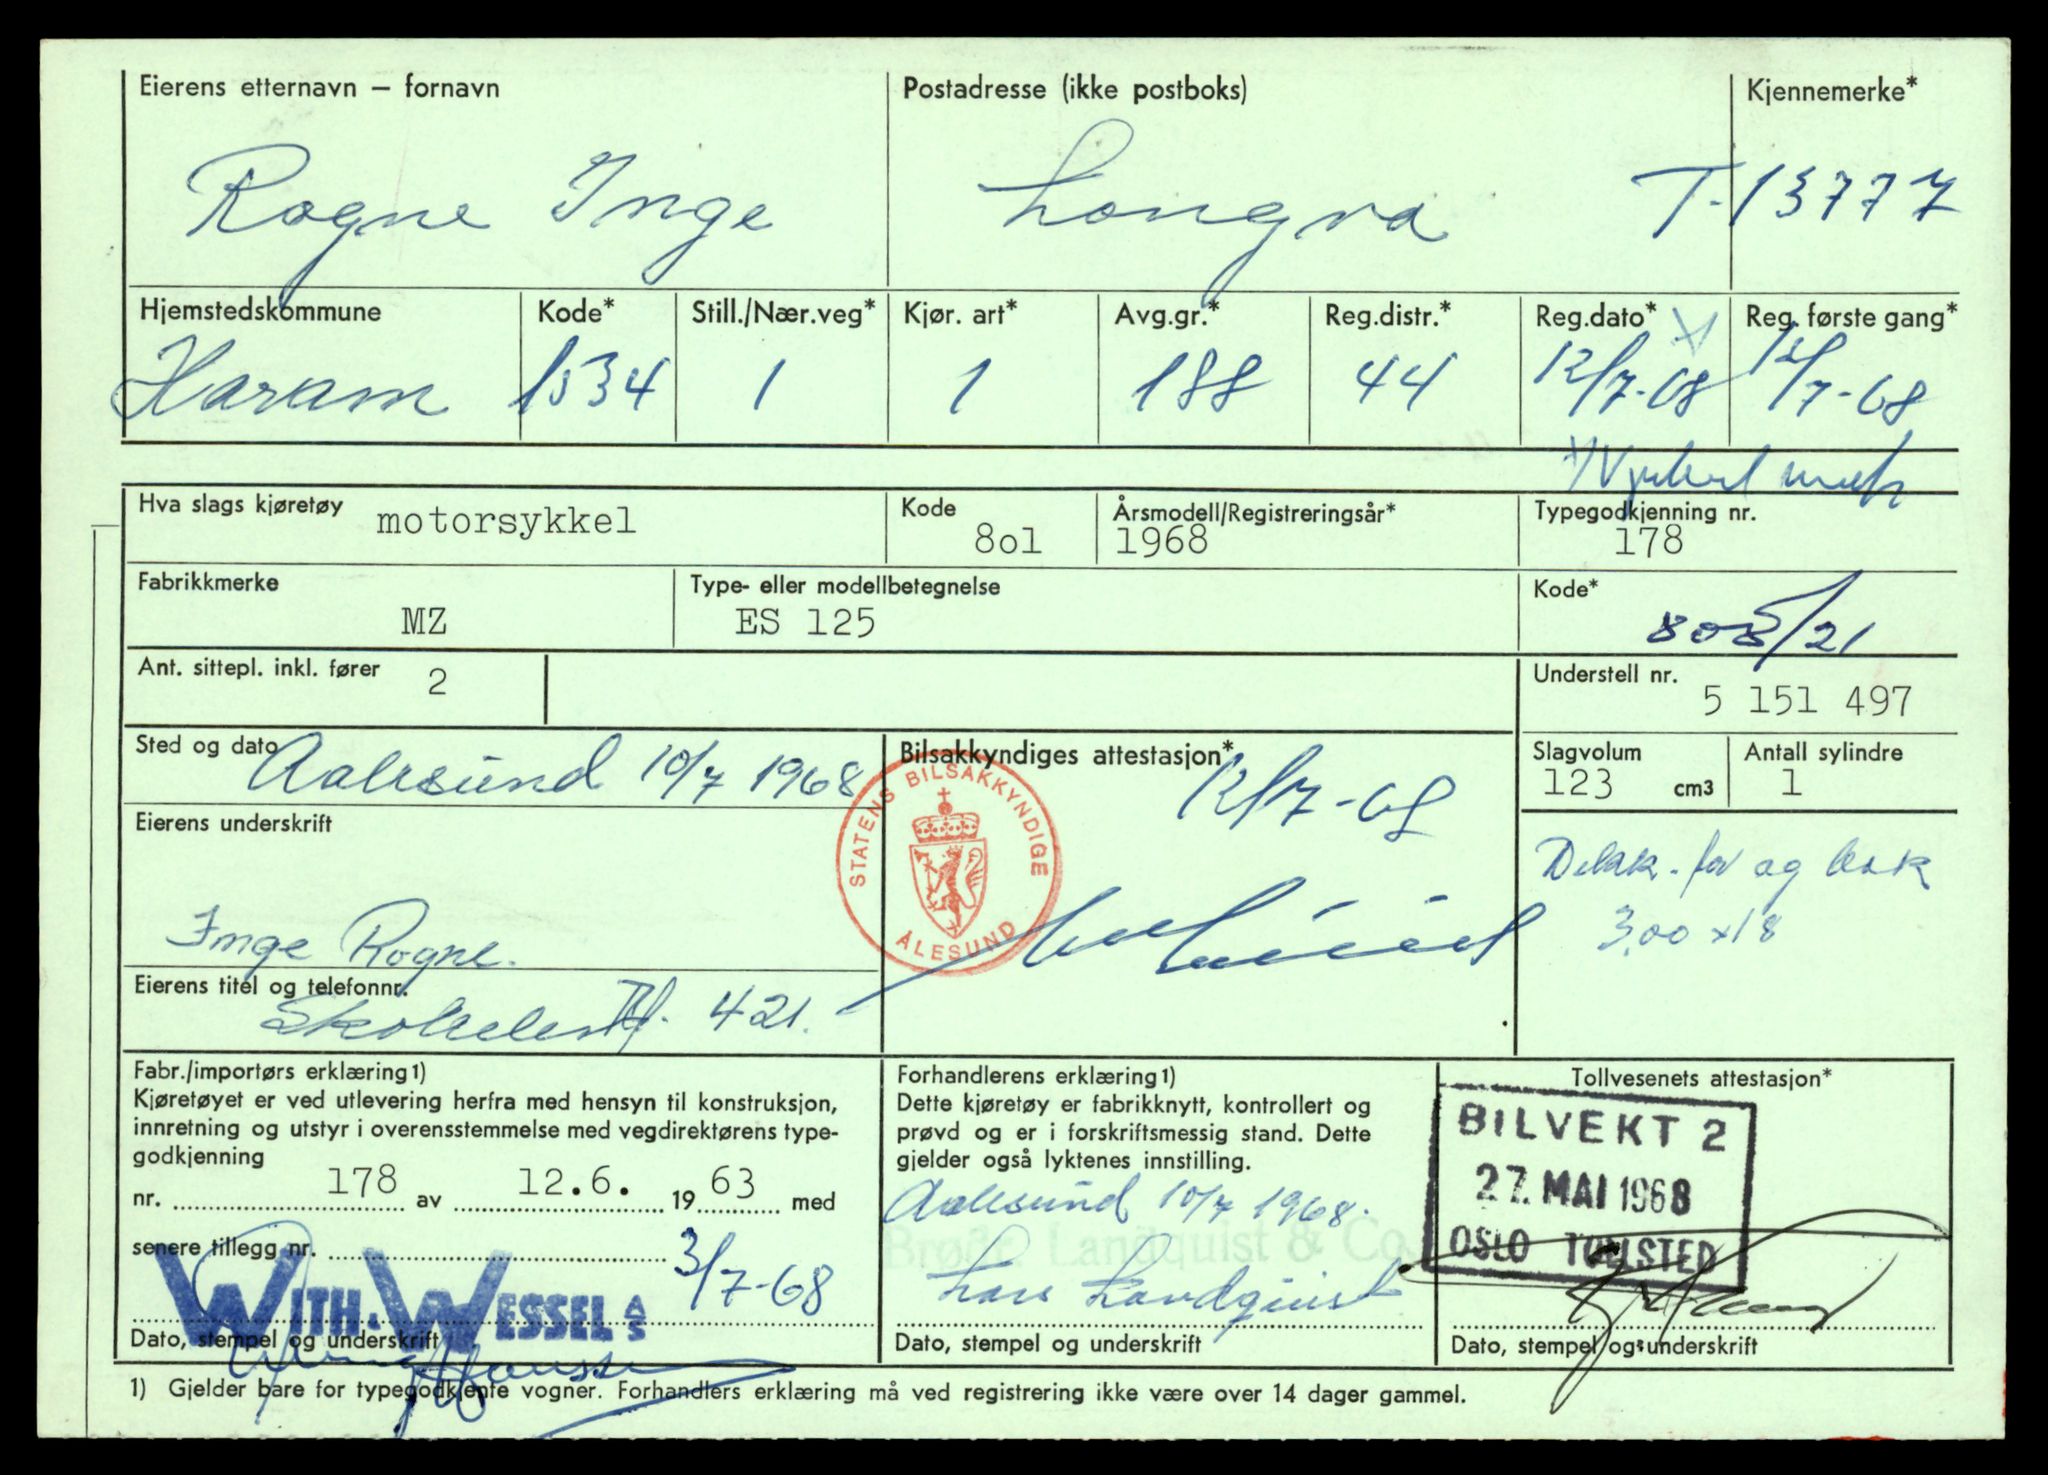 Eierens etternavn – fornavn Postadresse (ikke postboks) Kjennemerke*
Rogne Inge Longva T-13777
Hjemstedskommune Kode* Still./Nær.veg* Kjør. art* Avg.gr.* Reg.distr.* Reg.dato* Reg. første gang*
Haram 1534 1 1 188 44 12/7-68 12/7-68
Hva slags kjøretøy motorsykkel Kode 8o1 Årsmodell/Registreringsår* 1968 Typegodkjenning nr. 178
Fabrikkmerke MZ Type- eller modellbetegnelse ES 125 Kode*
Ant. sittepl. inkl. fører 2 Understell nr. 5 151 497
Sted og dato Aalesund 10/7 1968 Bilsakkyndiges attestasjon* 12/7-68 Slagvolum 123 cm3 Antall sylindre 1
STATENS BILSAKKYNDIGE ÅLESUND
Eierens underskrift
Dekk. for og bak
3,00 x 18
Inge Rogne.
Eierens titel og telefonnr.
Tlf. 421.
Fabr./importørs erklæring1)
Kjøretøyet er ved utlevering herfra med hensyn til konstruksjon,
innretning og utstyr i overensstemmelse med vegdirektørens type-
godkjenning
nr. 178 av 12.6. 1963 med
senere tillegg nr.
3/7-68
WITH & WESSEL A/S
Dato, stempel og underskrift
Forhandlerens erklæring1)
Dette kjøretøy er fabrikknytt, kontrollert og
prøvd og er i forskriftsmessig stand. Dette
gjelder også lyktenes innstilling.
Aalesund 10/7 1968.
Brødr. Landquist & Co.
Lars Landquist
Dato, stempel og underskrift
Tollvesenets attestasjon*
BILVEKT 2
27. MAI 1968
OSLO TOLLSTED
Dato, stempel og underskrift
1) Gjelder bare for typegodkjente vogner. Forhandlers erklæring må ved registrering ikke være over 14 dager gammel.